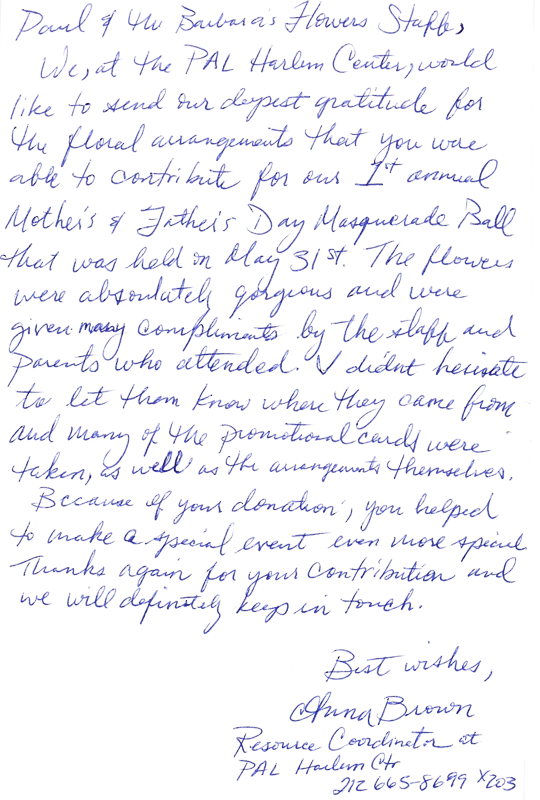 Paul & the Barbara's Flowers Staff,
We, at the PAL Harlem Center, would
like to send our deepest gratitude for
the floral arrangements that you were
able to contribute for our 1st annual
Mother's & Father's Day Masquerade Ball
that was held on May 31st. The flowers
were absolutely gorgious and were
given many compliments by the staff and
parents who attended. I didnt hesitate
to let them know where they came from
and many of the promotional cards were
taken, as well as the arrangements themselves.
Because of your donation, you helped
to make a special event even more special
Thanks again for your contribution and
we will definitely keep in touch.
Best wishes,
Anna Brown
Resource Coordinator at
PAL Harlem Ctr
212 665-8699 x203